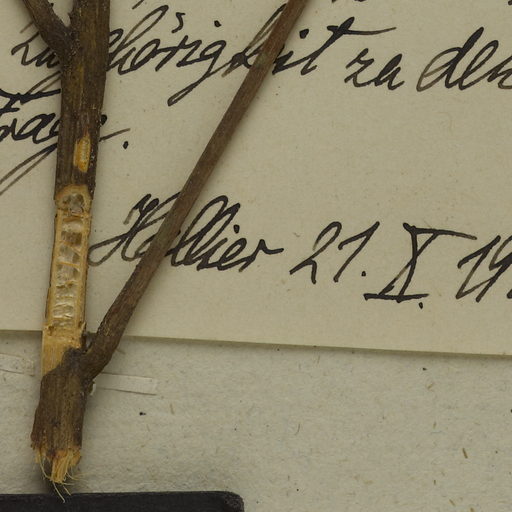 Zugehörigkeit zu den
Frage.
Hallier 21. X. 19